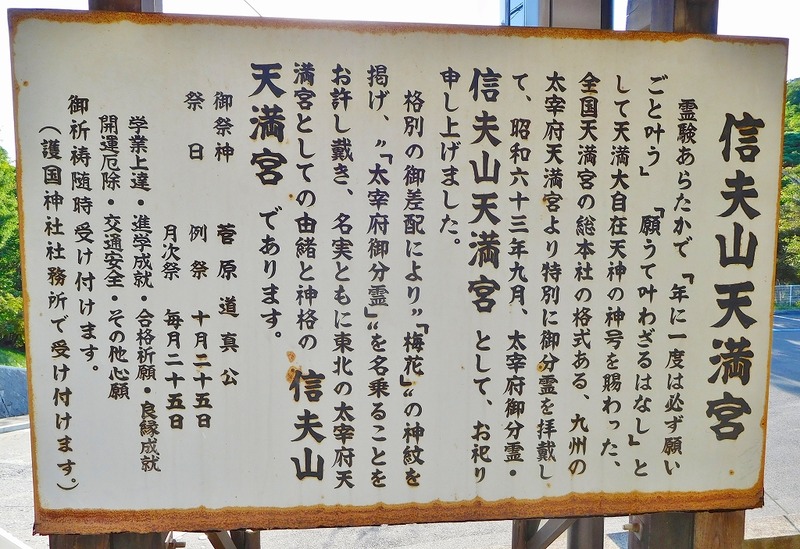 信夫山天満宮
霊験あらたかで「年に一度は必ず願い
ごと叶う」「願うて叶わざるはなし」と
して天満大自在天神の神号を賜わった、
全国天満宮の総本社の格式ある、九州の
太宰府天満宮より特別に御分霊を拝戴し
て、昭和六十三年九月、太宰府御分霊・
信夫山天満宮 として、お祀り
申し上げました。
格別の御差配により〝「梅花」〟の神紋を
掲げ、〝「太宰府御分霊」〟を名乗ることを
お許し戴き、名実ともに東北の太宰府天
満宮としての由緒と神格の 信夫山
天満宮 であります。
御祭神 菅原道真公
祭日 例祭 十月二十五日
月次祭 毎月二十五日
学業上達・進学成就・合格祈願・良縁成就
開運厄除・交通安全・その他心願
御祈祷随時受け付けます。
（護国神社社務所で受け付けます。）